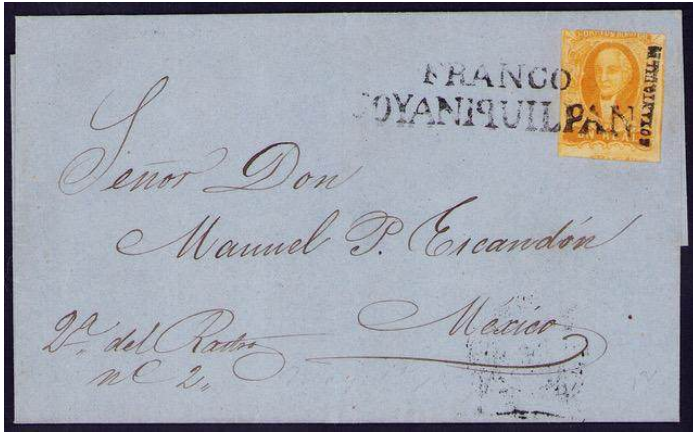 FRANCO
SOYANIQUILPAN
UN REAL
Señor Don
Manuel P. Escandón
México
2ª del Rastro
nº 2„